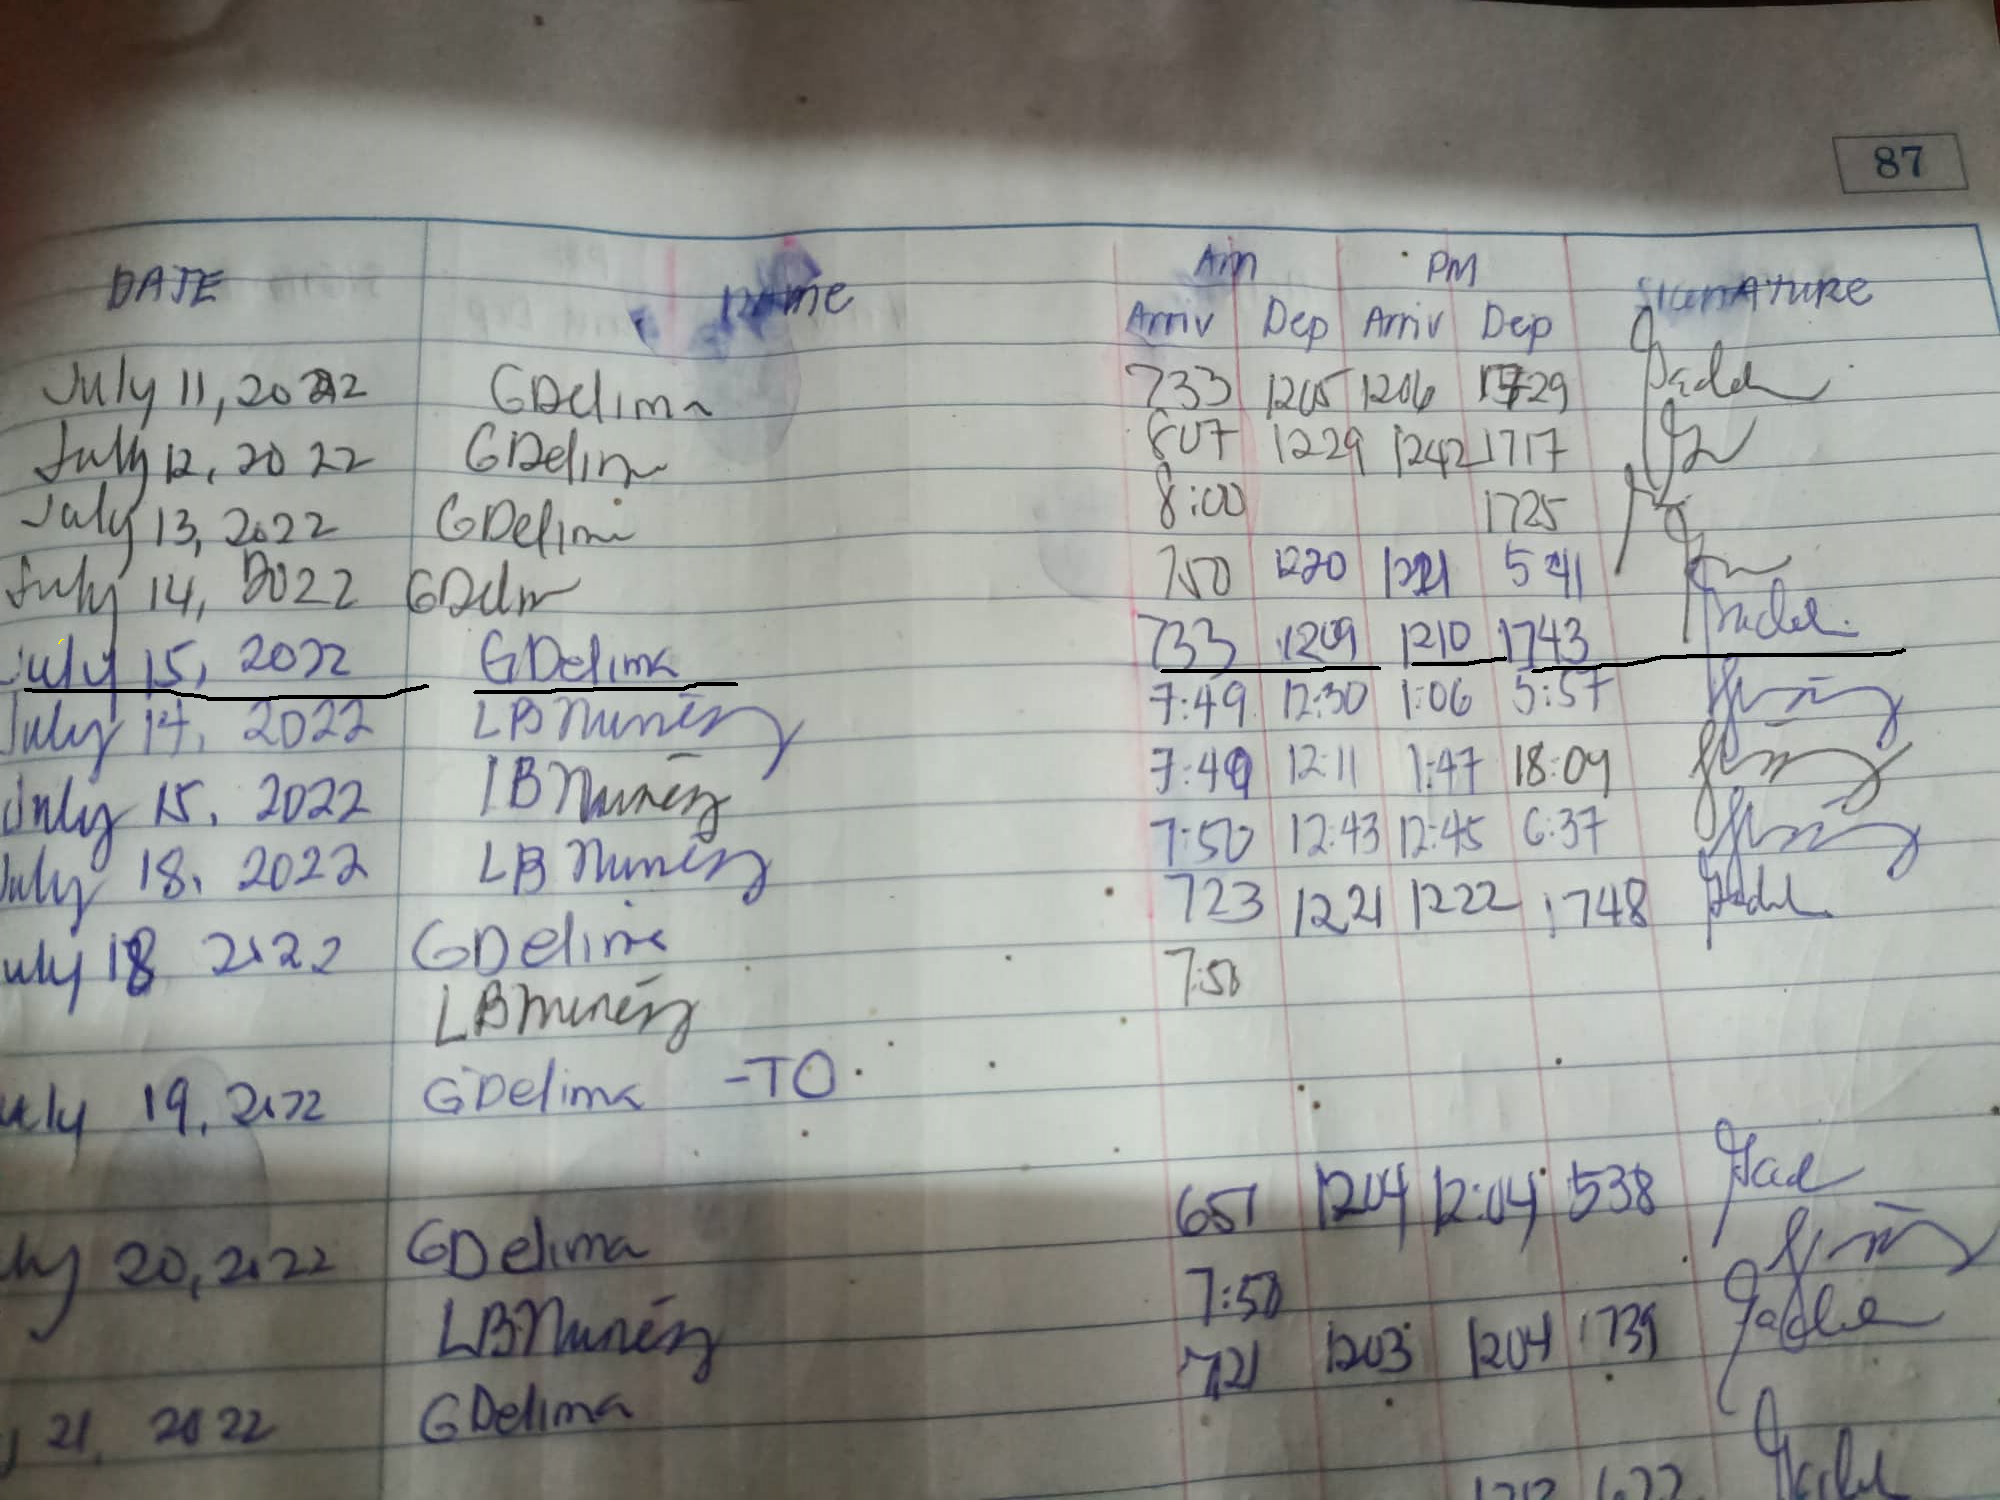 87
DATE NAME Am PM SIGNATURE
Arriv Dep Arriv Dep
July 11, 2022 GDelima 733 1205 1206 1729
July 12, 2022 GDelima 807 1229 1242 1717
July 13, 2022 GDelima 8:00 1725
July 14, 2022 GDelm 750 1220 1221 541
July 15, 2022 GDelima 733 1209 1210 1743
July 14, 2022 LB Nuñez 7:49 12:30 1:06 5:57
July 15, 2022 LB Nuñez 7:49 12:11 1:47 18:09
July 18, 2022 LB Nuñez 7:50 12:43 12:45 6:37
uly 18 2022 GDelima 723 1221 1222 1748
LB Nuñez 7:50
uly 19, 2022 GDelima -TO
20, 2022 GDelima 651 1204 12:04 538
LB Nuñez 7:50
21, 2022 GDelima 721 1203 1204 1739